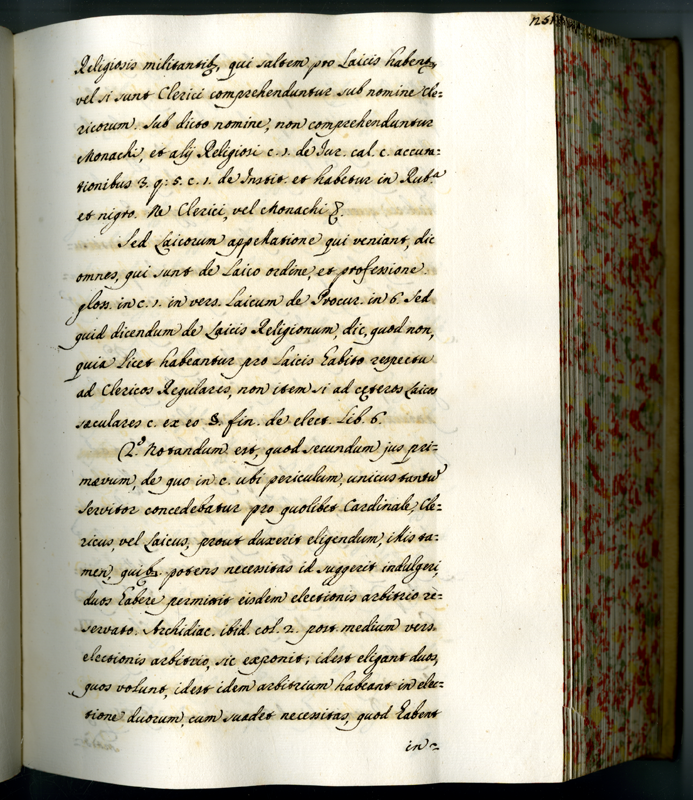 Religiosis militantib9, qui saltem pro Laicis habentr,
vel si sunt Clerici comprehenduntur sub nomine Cle=
ricorum. Sub dicto nomine, non comprehenduntur
Monachi, et alij Religiosi c. 1. de Jur. cal. c. accusa=
tionibus 3. q: 5. c. 1. de Instit. et habetur in Rub.a
et nigro. Ne Clerici, vel Monachi &.
Sed Laicorum appellatione qui veniant, dic
omnes, qui sunt de Laico ordine, et professione
gloss. in c. 1. in vers. Laicum de Procur. in 6. Sed
quid dicendum de Laicis Religionum, dic, quod non,
quia licet habeantur pro Laicis habito respectu
ad Clericos Regulares, non item si ad cęteros Laicos
sæculares c. ex eo §. fin. de elect. Lib. 6.
(2.o Notandum est, quod secundum jus pri=
mævum, de quo in c. ubi periculum, unicus tantũ
Servitor concedebatur pro quolibet Cardinale, Cle=
ricus, vel Laicus, prout duxerit eligendum, illis ta=
men, quib9. potens necessitas id suggerit indulgeri,
duos habere permittit eisdem electionis arbitrio re=
servato. Archidiac. ibid. col. 2. post medium vers.
electionis arbitrio, sic exponit; idest eligant duos,
quos volunt, idest idem arbitrium habeant in elec=
tione duorum, cum suadet necessitas, quod habent
in =